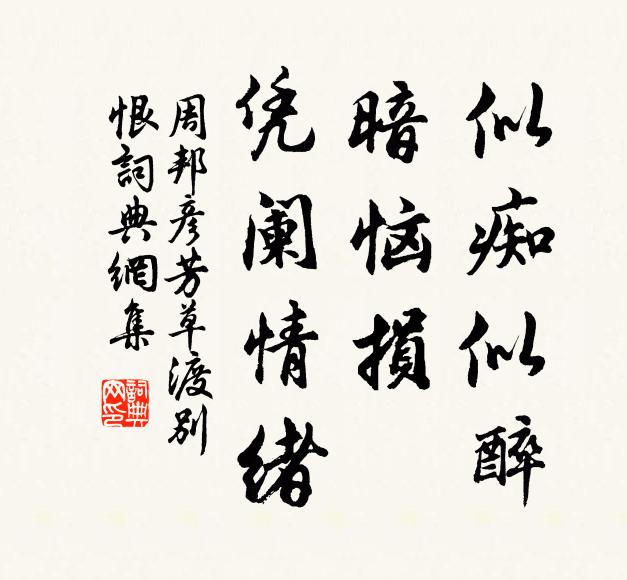 似痴似醉
暗恼損
凭阑情绪
周邦彦芳草渡别
恨詞典網集
詞典网印